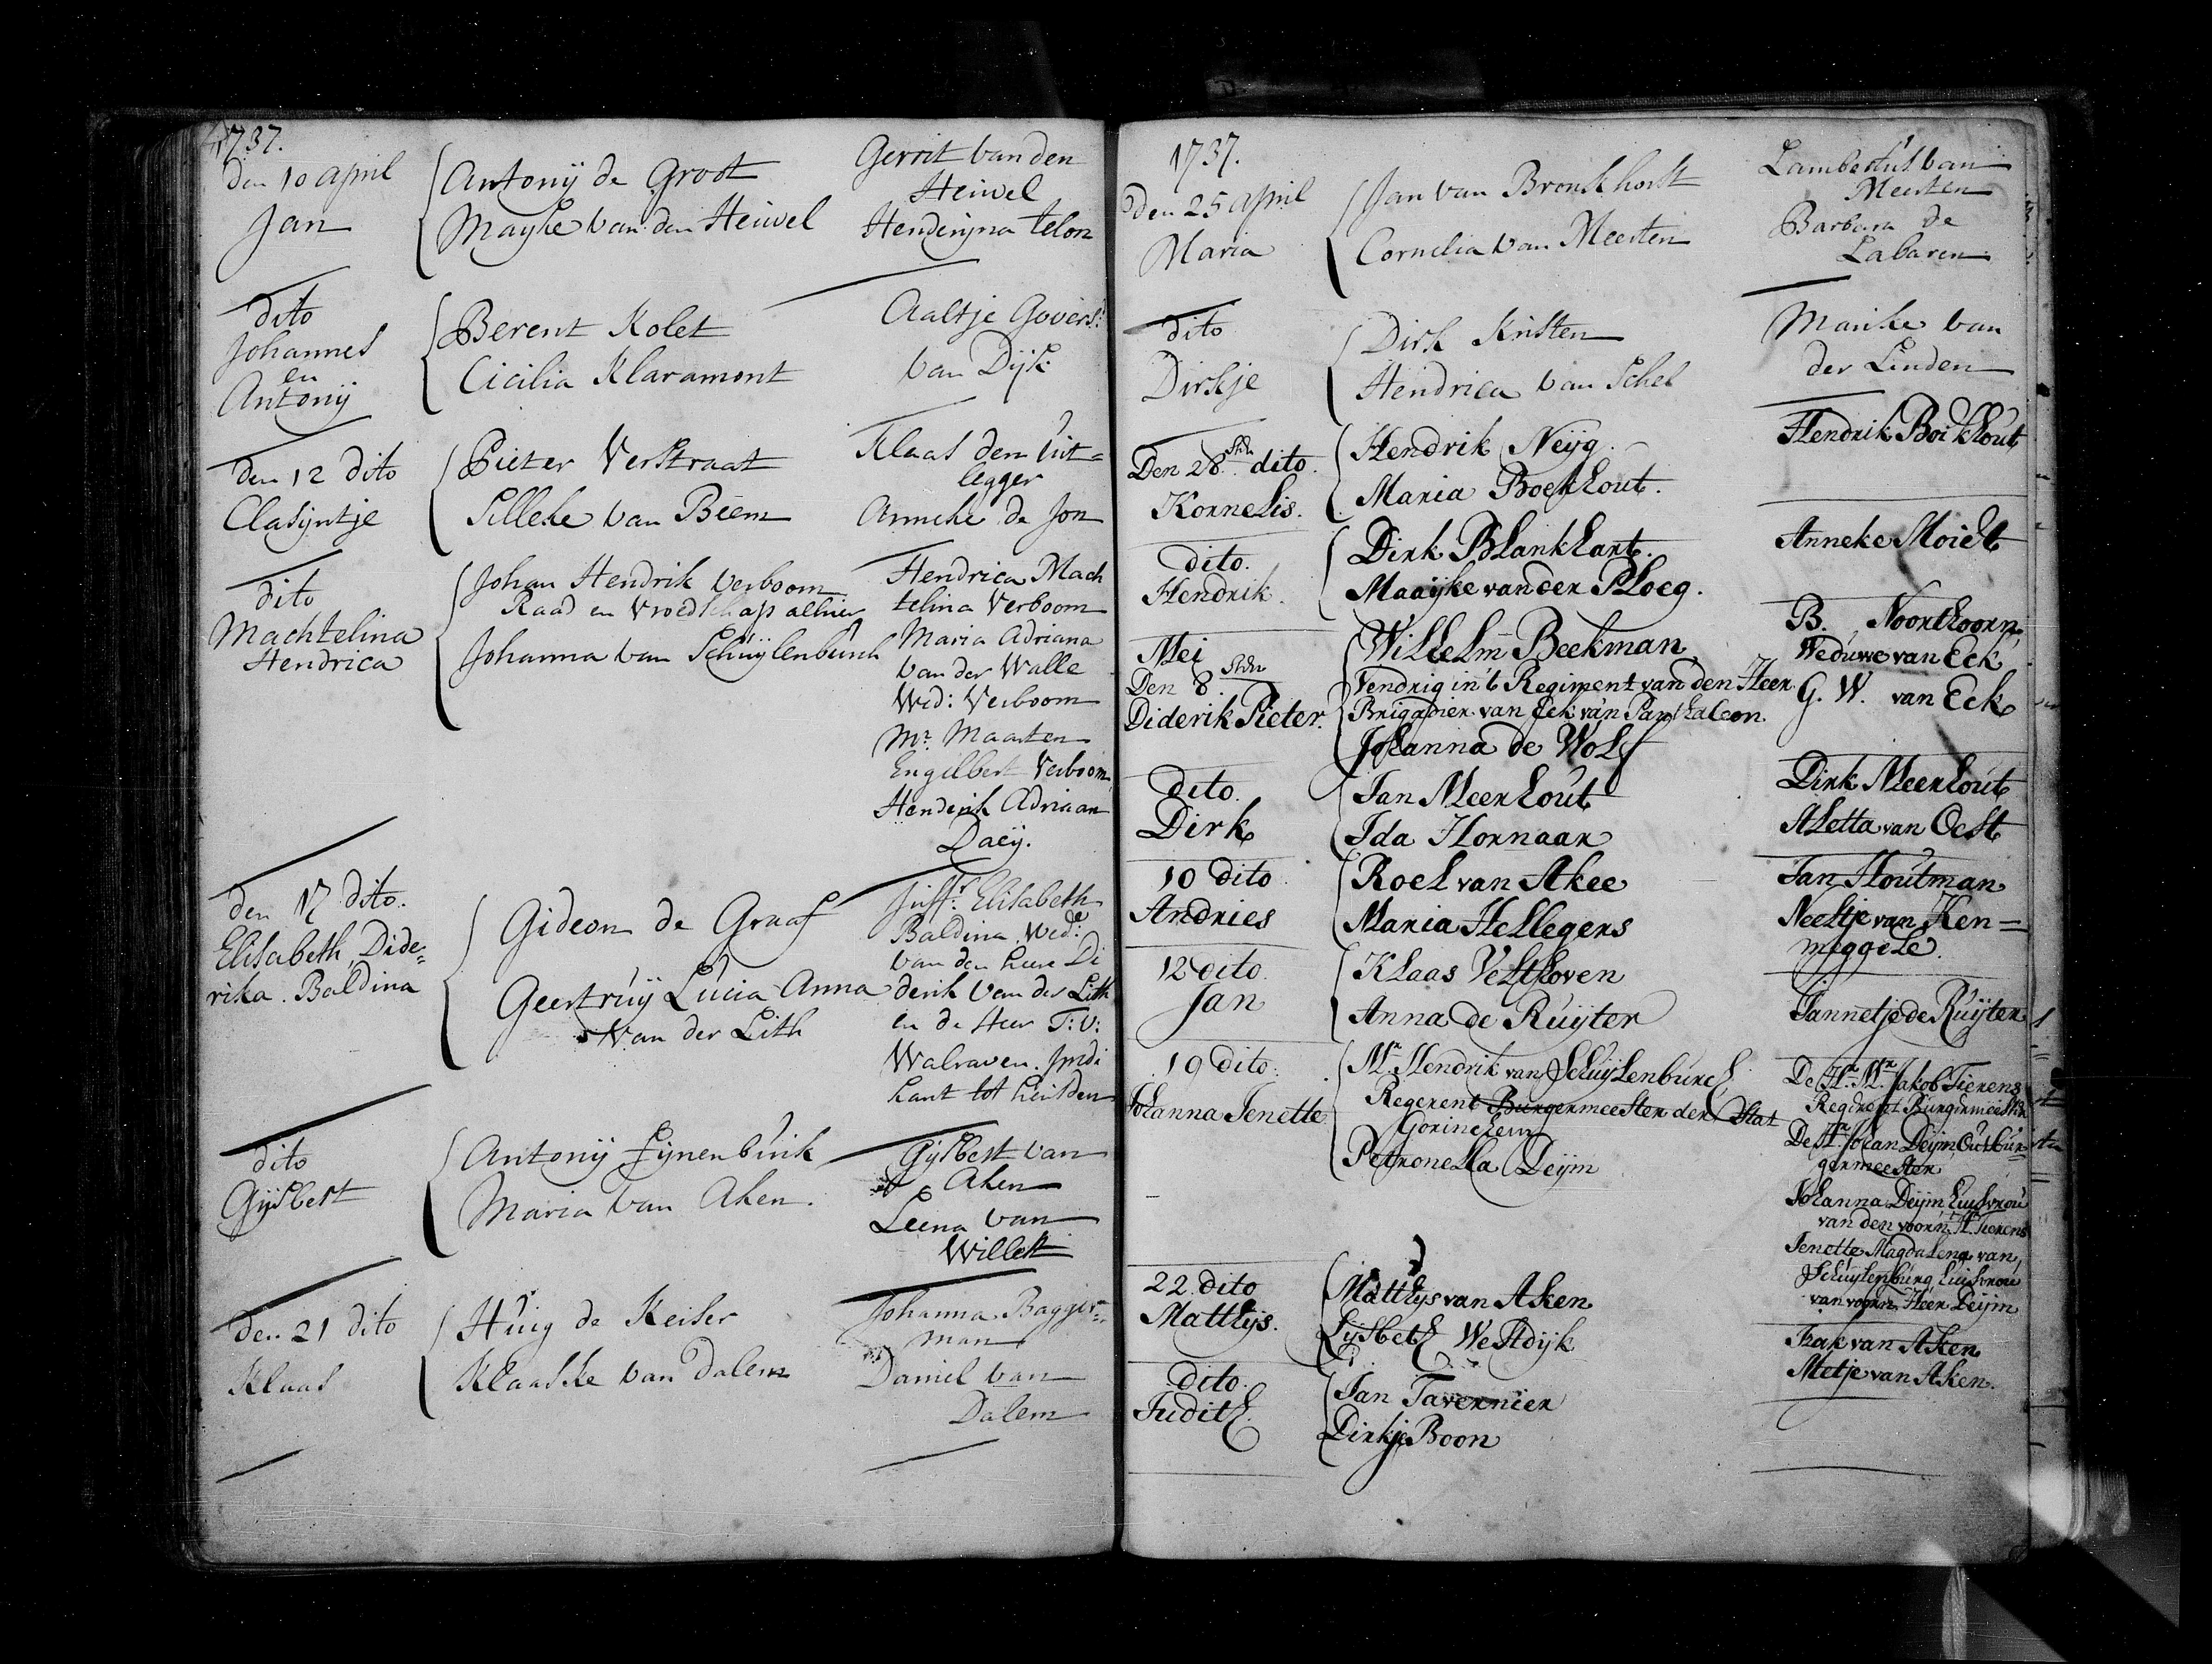 1737.
den 10 april
Jan
Antonij de Groot
Mayke van den Heuvel
Gerrit van den
Heuvel
Henderijna telon
dito
Johannes
en
Antonij
Berent Kolet
Cicilia Klaramont
Aaltje Govers:
van Dijk
den 12 dito
Clasijntje
Pieter Verstraat
Silleke van Beem
Klaas den uit=
legger
Anneke de Jon
dito
Machtelina
Hendrica
Johan Hendrik Verboom
Raad en Vroedschap alhier
Johanna van Schuijlenburch
Hendrica Mach
telina Verboom
Maria Adriana
van der Walle
Wed: Verboom
Mr. Maarten
Engelbert Verboom
Henderik Adriaan
Daeij.
den 17 dito.
Elisabeth, Dide=
rika. Baldina
Gideon de Graaf
Geertruij Lucia Anna
van der Lith
Juffr. Elisabeth
Baldina, Wede
van den heere Di
derik van der Lith
en de Heer T: V:
Walraven. predi
kant tot heusden
dito
Gijsbert
Antonij Fijnenbuik
Maria van Aken.
Gijsbert van
Aken
Leena van
Willett
den 21 dito
Klaas
Huig de Keiser
Klaaske van Dalem
Johanna Bagger=
man
Daniel van
Dalem
1737.
den 25 april
Maria
Jan van Bronkhorst
Cornelia van Meerten
Lambertus van
Meerten
Barbara de
Labaren
dito
Dirkje
Dirk Kristen
Hendrica van Schel
Marike van
der Linden
Den 28sten dito.
Kornelis.
Hendrik Neijg.
Maria Boekhout.
Hendrik Boikhout
dito.
Hendrik.
Dirk Blankhart.
Maaijke van der Ploeg.
Anneke Moiet
Mei
Den 8sten
Diderik Pieter.
Willelm Beekman
Vendrig in 't Regiment van den Heer
Brigadier van Eek van Panthaleon.
Johanna de Wolf
B. Noorthoorn,
Weduwe van Eck
G. W. van Eck
dito.
Dirk
Jan Meerhout
Ida Hornaar
Dirk Meerhout
Aletta van Oest
10 dito.
Andries
Roel van Akee
Maria Hellegers
Jan Houtman
Neeltje van Ken=
meggele.
12 dito.
Jan
Klaas Velthoven
Anna de Ruijter
Jannetje de Ruijter
19 dito.
Johanna Jenette
Mr. Hendrik van Schuijlenburch
Regerent Burgermeester der Stat
Gorinchem
Petronella Deijm
De Hr. Mr. Jakob Tierens
Regerent Burgermeester
De Hr. Johan Deijm, Out bur=
germeester
Johanna Deijm huisvrou
van den voorn. H. Tierens
Jenette Magdalena van
Schuijlenburg huisvrou
van voorn. Heer Deijm
22. dito
Matthys.
Matthys van Aken
Lijsbeth Westdijk
Izak van Aken
Metje van Aken.
dito.
Judith.
Jan Tavernier
Dirkje Boon